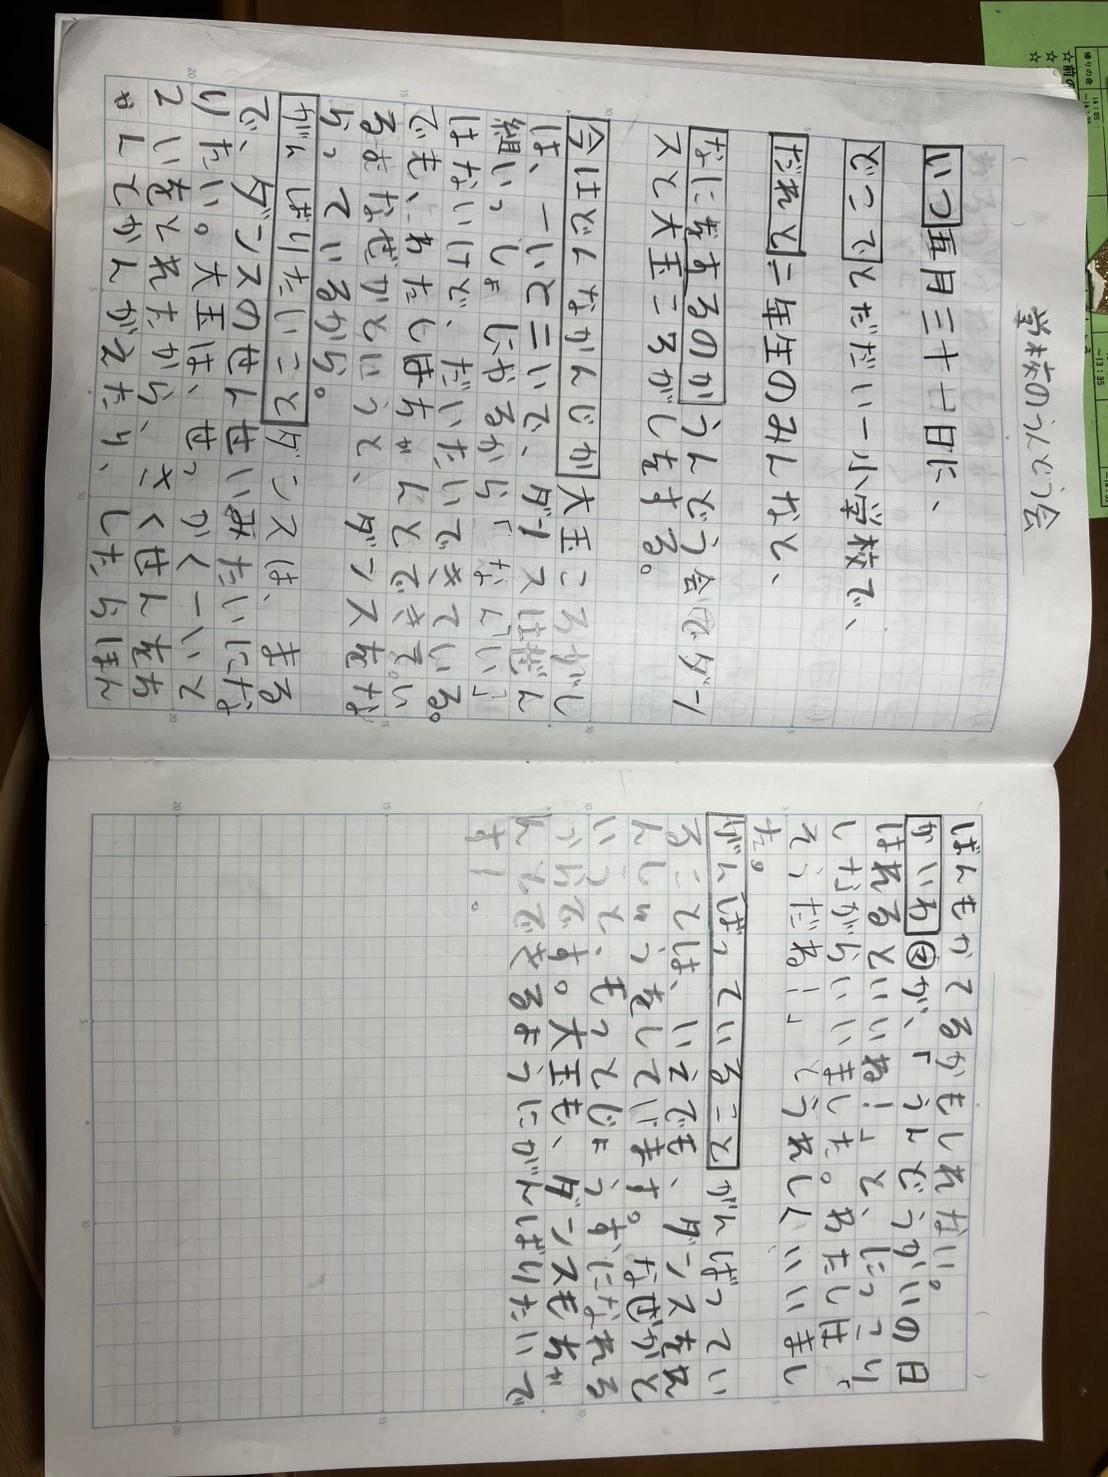 学校のうんどう会
いつ五月三十一日に、
どこでとだだい一小学校で、
だれと二年生のみんなと、
なにをするのかうんどう会でダン
スと大玉ころがしをする。
今はどんなかんじか大玉ころがし
は、一いと二いで、ダンスはぜん
組いっしょじゃるから「なんい」
はないけど、だいたいできている。
でも、わたしはちゃんとできてい
るよなぜかというと、ダンスをな
らっているから。
がんばりたいことダンスは、まる
で、ダンスのせんせいみたいにな
りたい。大玉は、せっかく一いと
2いをとれたから、さくせんをち
ゃんとかんがえたり、したらほん
ばんもかてるかもしれない。
かいわが、「うんどうかいの日
はれるといいね!」と、にっこり
しながらいいました。わたしは「
そうだね!」とうれしくいいまし
た。
がんばっていることがんばってい
ることは、いえでも、ダンスをれ
んしゅうをしています。なぜかと
いうと、もっとじょうずになれる
からです。大玉も、ダンスもちゃ
んとできるようにがんばりたいで
す!。
帰りの会
14:05
☆前の
~13:35